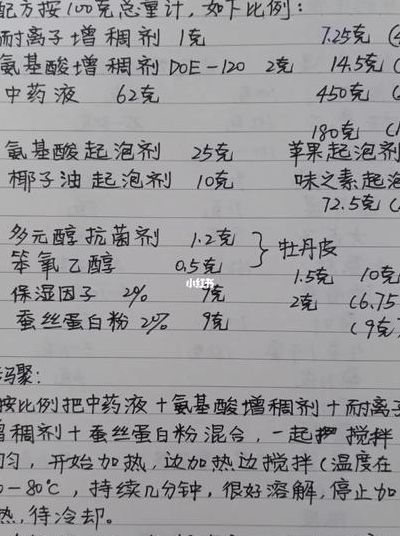 配方按100克总量计，如下比例：
耐离子增稠剂 1克 7.25克
氨基酸增稠剂DOE-120 2克 14.5克
中药液 62克 450克
180克
氨基酸起泡剂 25克 苹果起泡剂
椰子油起泡剂 10克 味之素起泡
72.5克
多元醇抗菌剂 1.2克
牡丹皮
苯氧乙醇 0.5克
1.5克 10克
保湿因子 2% 克 2克 (6.75
蚕丝蛋白粉 2% 9克 (9克)
骤：
按比例把中药液+氨基酸增稠剂+耐离子
增稠剂+蚕丝蛋白粉混合，一起 搅拌
匀，开始加热，边加热边搅拌(温度在
0-80℃，持续几分钟，很好溶解，停止加
热，待冷却。
小红书